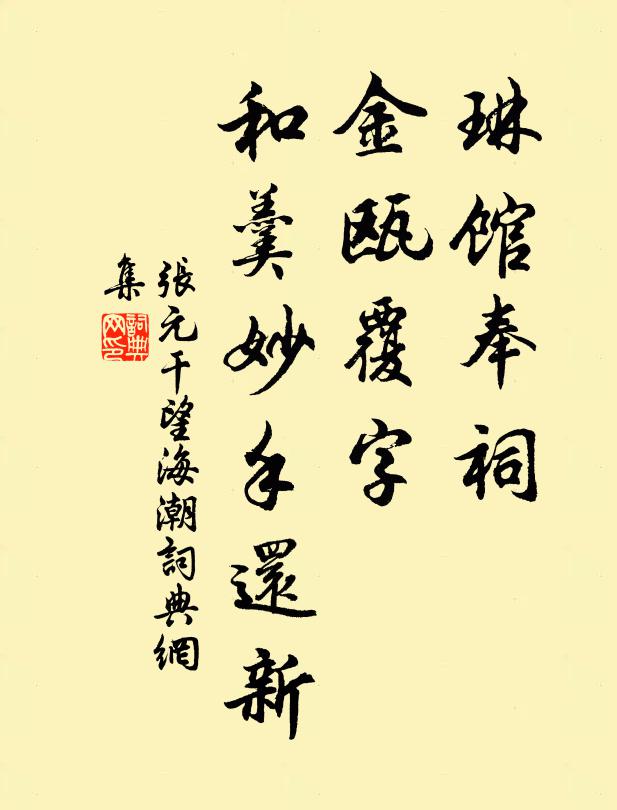 琳館奉祠
金甌覆字
和羹妙手還新
張元干望海潮詞典網
集
詞典
网印